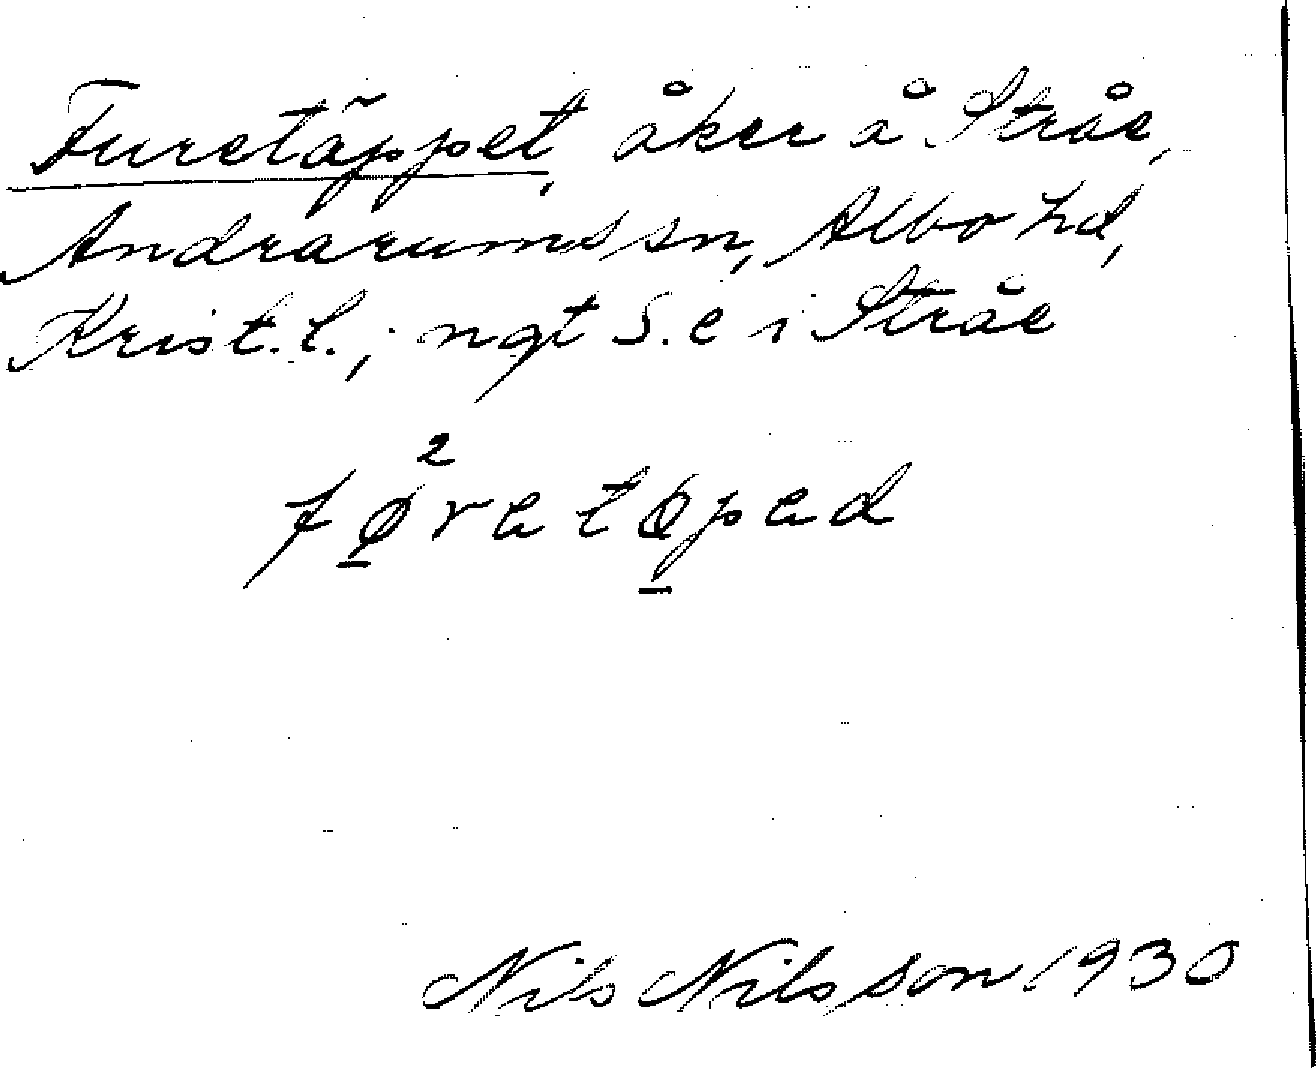 Furetäppet, åker å Stråe,
Andrarums sn, Albo hd,
Krist. l.; ngt S. e i Stråe
fø̱²retø̱ped
Nils Nilsson 1930